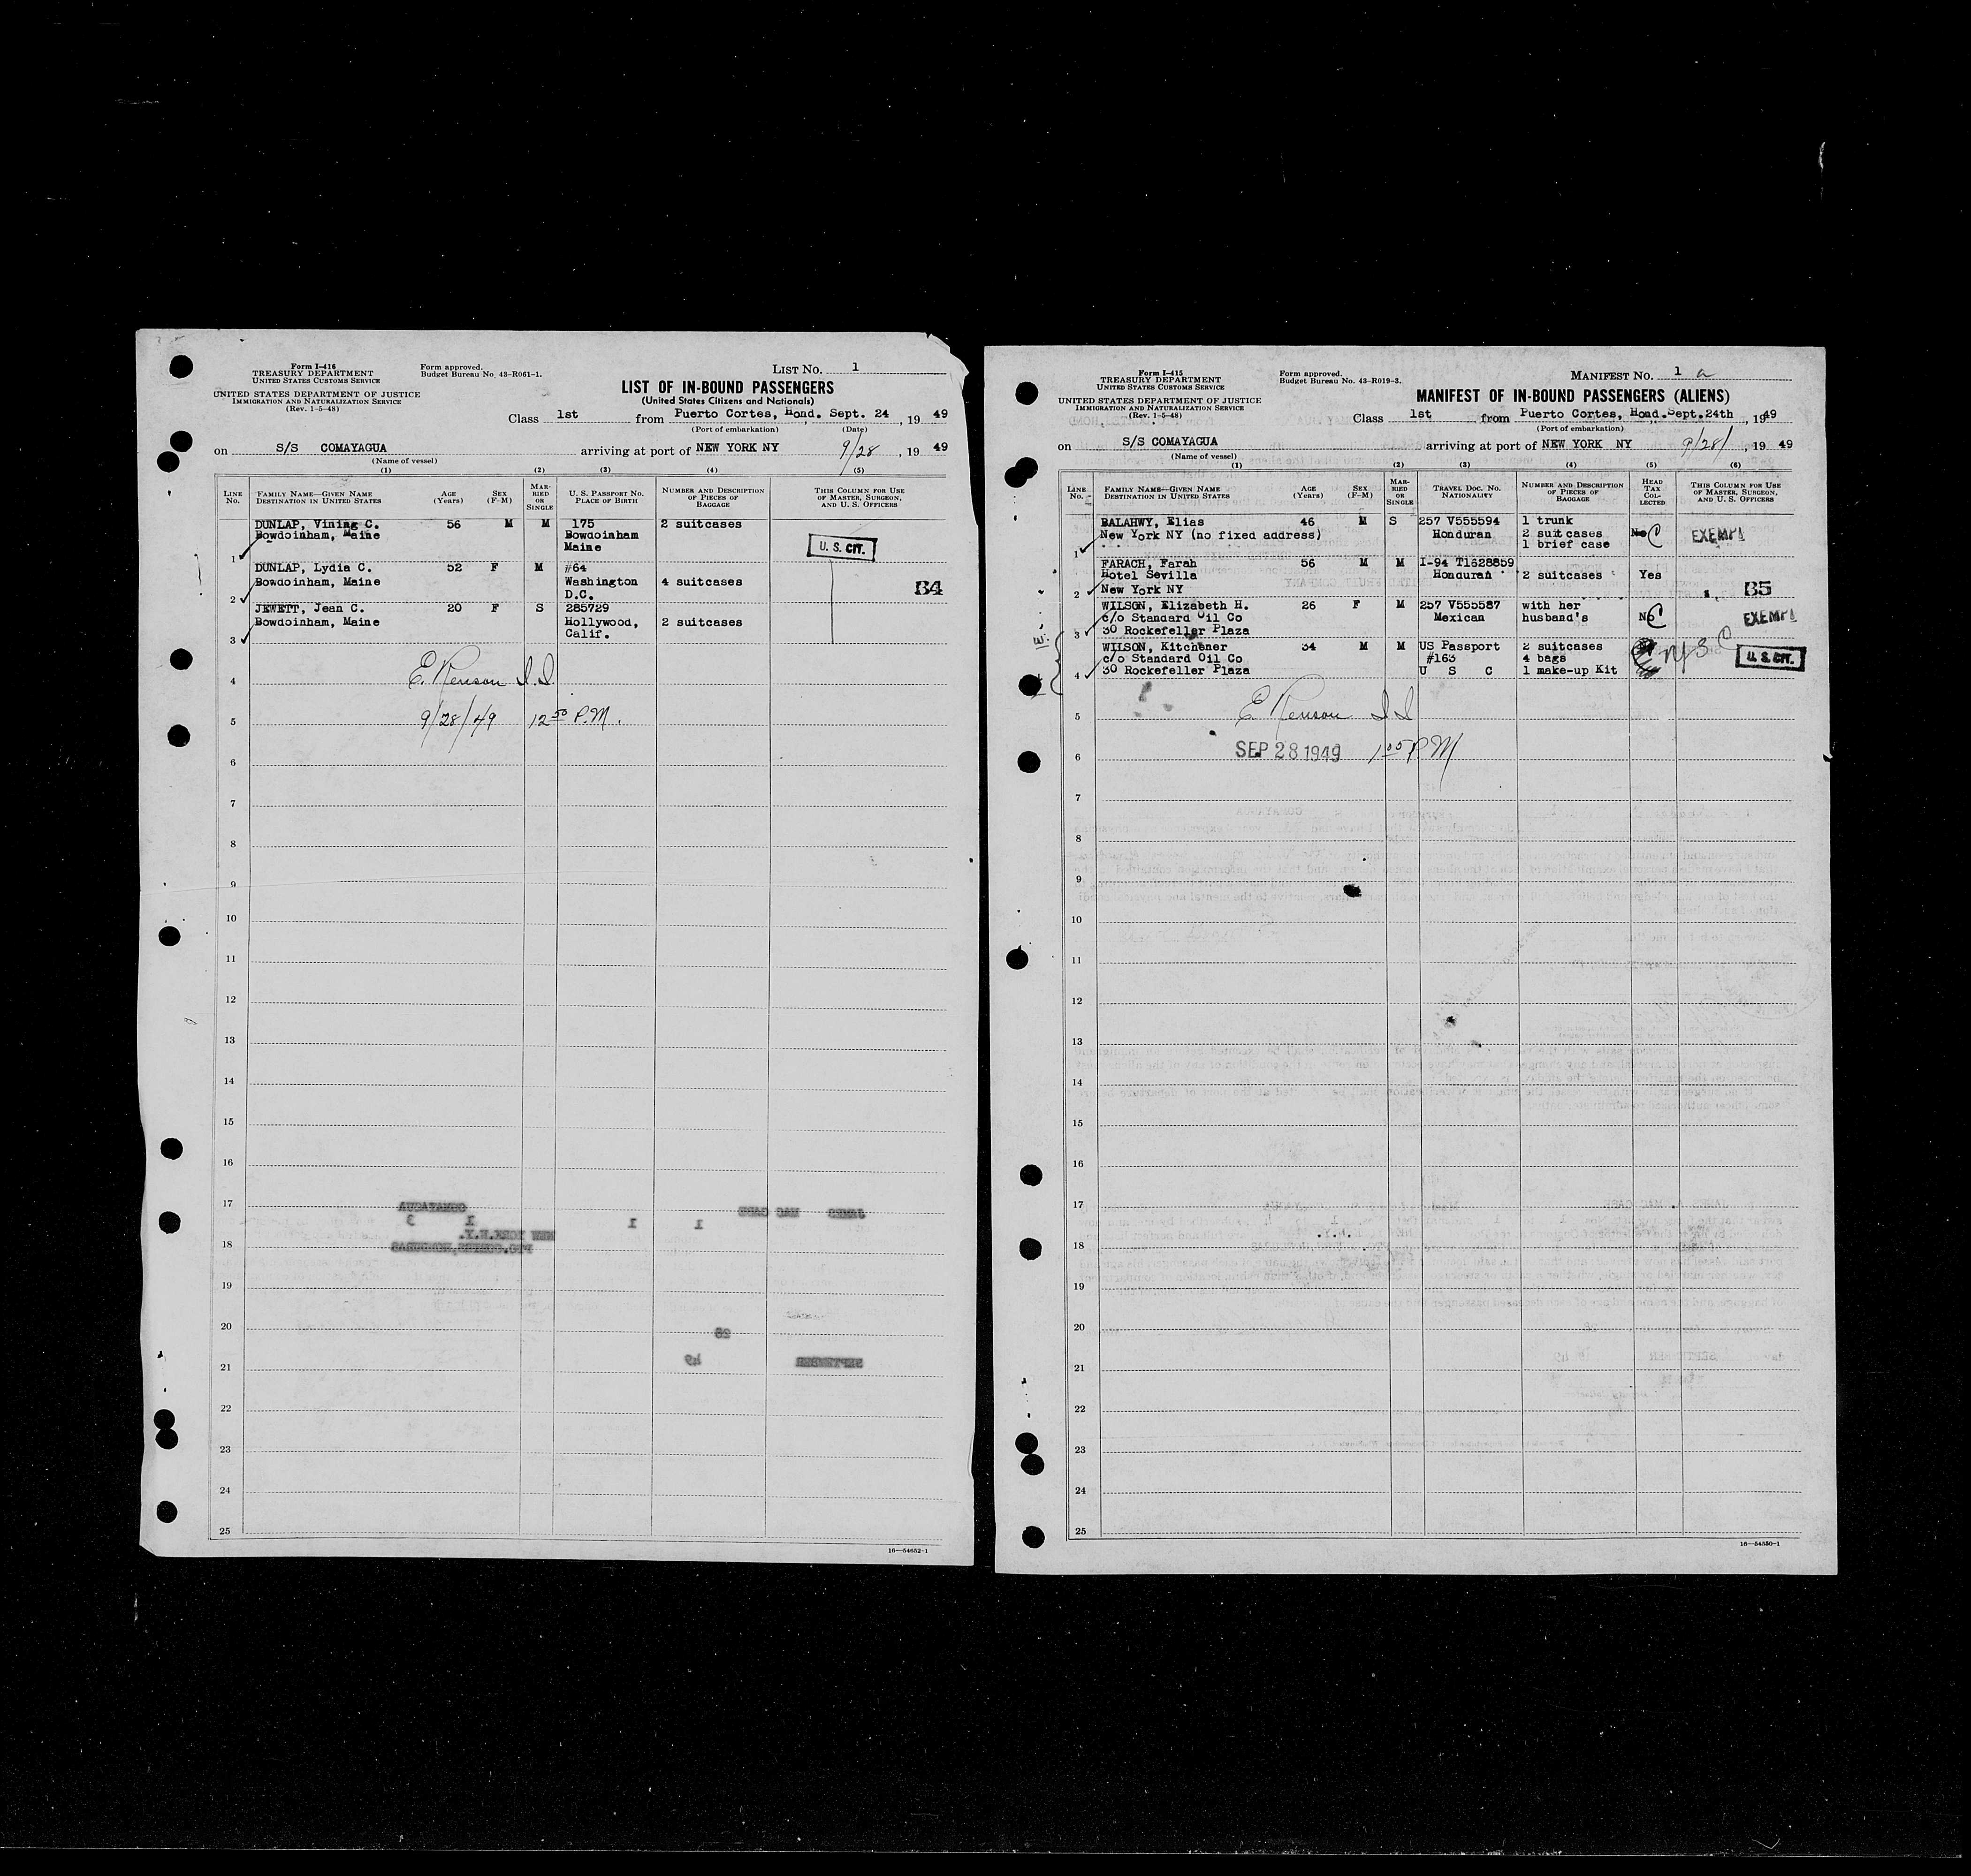 Form I-416
TREASURY DEPARTMENT
UNITED STATES CUSTOMS SERVICE
UNITED STATES DEPARTMENT OF JUSTICE
IMMIGRATION AND NATURALIZATION SERVICE
(Rev. 1-5-48)
Form approved.
Budget Bureau No. 43-R061-1.
LIST NO. 1
LIST OF IN-BOUND PASSENGERS
(United States Citizens and Nationals)
Class 1st from Puerto Cortes, Hond. Sept. 24, 19 49
(Port of embarkation) (Date)
on S/S COMAYAGUA arriving at port of NEW YORK NY 9/28, 19 49
(Name of vessel)
(1) (2) (3) (4) (5)
LINE NO. FAMILY NAME—GIVEN NAME DESTINATION IN UNITED STATES AGE (Years) SEX (F-M) MARRIED OR SINGLE U. S. PASSPORT NO. PLACE OF BIRTH NUMBER AND DESCRIPTION OF PIECES OF BAGGAGE THIS COLUMN FOR USE OF MASTER, SURGEON, AND U. S. OFFICERS
DUNLAP, Vining C. 56 M M 175 2 suitcases
Bowdoinham, Maine Bowdoinham
1 Maine U. S. CIT.
DUNLAP, Lydia C. 52 F M #64
Bowdoinham, Maine Washington 4 suitcases B4
2 D.C.
JEWETT, Jean C. 20 F S 285729
Bowdoinham, Maine Hollywood, 2 suitcases
3 Calif.
4 E. Renson I.I.
5 9/28/49 12 50 P.M.
6
7
8
9
10
11
12
13
14
15
16
17
COMAYAGUA JAMES MAC CARD
1 3 1 1
NEW YORK.N.Y.
18 PTO.CORTES,HONDURAS
19
20 28
21 SEPTEMBER 49
22
23
24
25
16—54652-1
Form I-415
TREASURY DEPARTMENT
UNITED STATES CUSTOMS SERVICE
UNITED STATES DEPARTMENT OF JUSTICE
IMMIGRATION AND NATURALIZATION SERVICE
(Rev. 1-5-48)
Form approved.
Budget Bureau No. 43-R019-3.
MANIFEST NO. 1 a
MANIFEST OF IN-BOUND PASSENGERS (ALIENS)
Class 1st from Puerto Cortes, Hond. Sept. 24th, 19 49
(Port of embarkation)
on S/S COMAYAGUA arriving at port of NEW YORK NY 9/28/, 19 49
(Name of vessel)
(1) (2) (3) (4) (5) (6)
LINE NO. FAMILY NAME—GIVEN NAME DESTINATION IN UNITED STATES AGE (Years) SEX (F-M) MARRIED OR SINGLE TRAVEL DOC. NO. NATIONALITY NUMBER AND DESCRIPTION OF PIECES OF BAGGAGE HEAD TAX COLLECTED THIS COLUMN FOR USE OF MASTER, SURGEON, AND U. S. OFFICERS
BALAHWY, Elias 46 M S 257 V555594 1 trunk
New York NY (no fixed address) Honduran 2 suit cases No C EXEMPT
1 1 brief case
FARACH, Farah 56 M M I-94 T1628859
Hotel Sevilla Honduran 2 suitcases Yes
2 New York NY B5
WILSON, Elizabeth H. 26 F M 257 V555587 with her
c/o Standard Oil Co Mexican husband's No C EXEMPT
3 30 Rockefeller Plaza
WILSON, Kitchener 34 M M US Passport 2 suitcases
c/o Standard Oil Co #163 4 bags U. S. CIT.
4 30 Rockefeller Plaza U S C 1 make-up Kit
5 E Renson I I
6 SEP 28 1949 1 05 P.M
7
8
9
10
11
12
13
14
15
16
17
18
19
20
21
22
23
24
25
16—54550-1